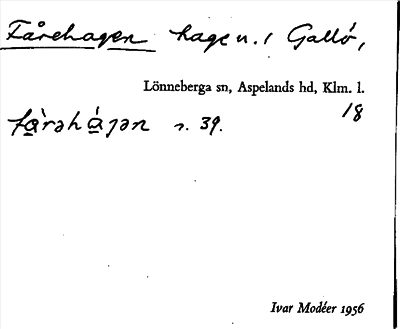 Fårehagen hage u. / Gallö,
Lönneberga sn, Aspelands hd, Klm. l.
18
fàrəhágən s. 39.
Ivar Modéer 1956